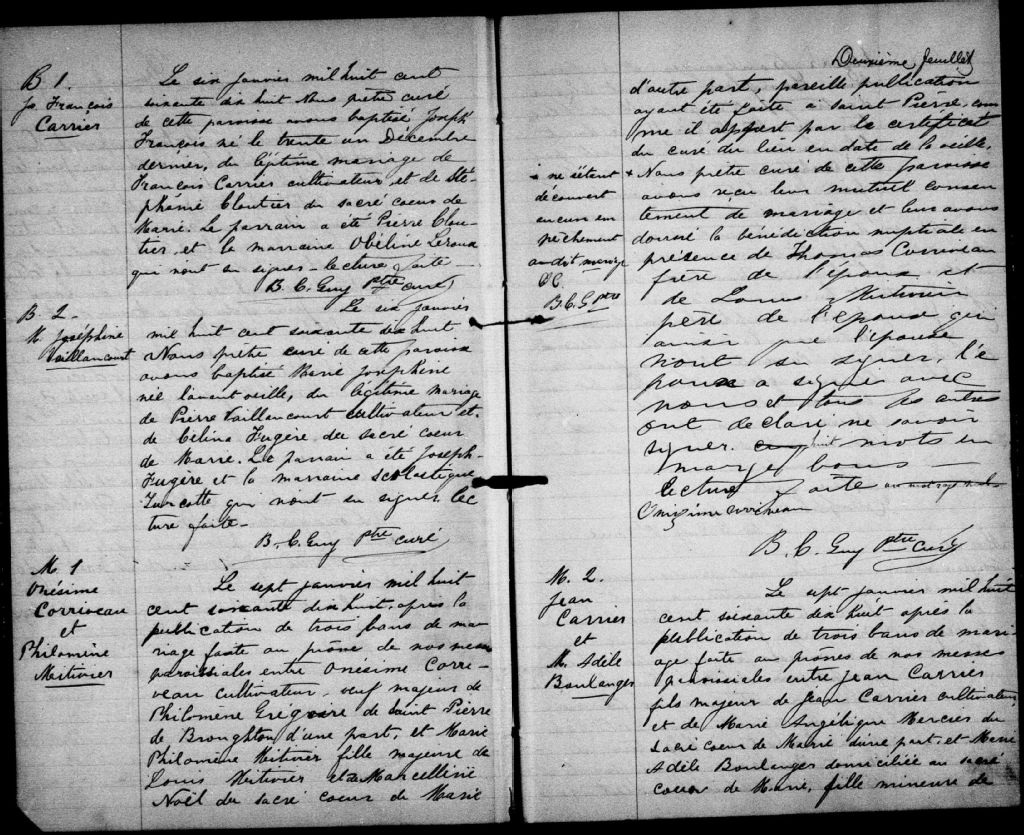 B 1.
Js. François
Carrier
Le six janvier mil huit cent
soixante dix huit Nous prêtre curé
de cette paroisse avons baptisé Joseph
François né le trente un Décembre
dernier, du légitime mariage de
François Carrier cultivateur et de Sté-
phanie Cloutier du sacré coeur de
Marie. Le parrain a été Pierre Clou-
tier et la marraine Obéline Leroux
qui n'ont su signer - lecture faite -
B. C. Guy Ptre curé
B. 2
M. Joséphine
Vaillancourt
Le six janvier
mil huit cent soixante dix huit
Nous prêtre curé de cette paroisse
avons baptisé Marie Joséphine
née l'avant veille, du légitime mariage
de Pierre Vaillancourt cultivateur et
de Célina Fugère du sacré coeur
de Marie. Le parrain a été Joseph
Fugère et la marraine Scolastique
Turcotte qui n'ont su signer lec
ture faite -
B. C. Guy Ptre curé
M. 1
Onésime
Corriveau
et
Philomène
Mitivier
Le sept janvier mil huit
cent soixante dix huit, après la
publication de trois bans de ma-
riage faite au prône de nos messes
paroissiales entre Onésime Corri-
veau cultivateur, veuf majeur de
Philomène Grégoire de Saint Pierre
de Broughton d'une part, et Marie
Philomène Mitivier fille majeure de
Louis Mitivier et de Marcelline
Noël du sacré coeur de Marie
Deuxième feuillet
d'autre part, pareille publication
ayant été faite à Saint Pierre, com
me il appert par le certificat
du curé du lieu en date de la veille,
+ Nous prêtre curé de cette paroisse
avons reçu leur mutuel consen
tement de mariage et leur avons
donné la bénédiction nuptiale en
présence de Thomas Corriveau
frère de l'époux et
de Louis Mitivier
père de l'épouse qui
ainsi que l'épouse
n'ont su signer. l'é
poux a signé avec
nous et tous les autres
ont déclaré ne savoir
signer. huit mots en
marge bons -
lecture faite
Onizime corriveau
B. C. Guy Ptre curé
+ ne s'étant
découvert
aucun em
pêchement
au dit mariage
B. C. G Ptre
M. 2.
Jean
Carrier
et
M. Adèle
Boulanger
Le sept janvier mil huit
cent soixante dix huit après la
publication de trois bans de mari-
age faite au prônes de nos messes
paroissiales entre Jean Carrier
fils majeur de Jean Carrier cultivateur
et de Marie Angélique Mercier du
sacré coeur de Marie d'une part, et Marie
Adèle Boulanger domiciliée au sacré
coeur de Marie, fille mineure de